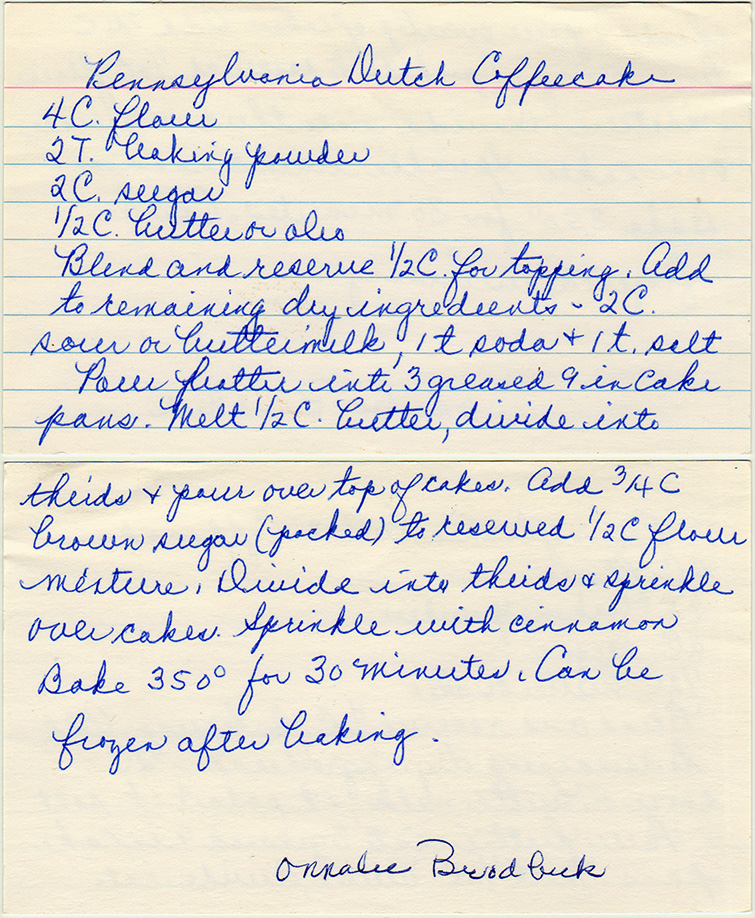 Pennsylvania Dutch Coffeecake
4 C. flour
2 T. baking powder
2 C. sugar
1/2 C. butter or oleo
Blend and reserve 1/2 C. for topping. Add
to remaining dry ingredients - 2 C.
sour or buttermilk, 1 t soda + 1 t. salt
Pour batter into 3 greased 9 in cake
pans. Melt 1/2 C. butter, divide into
thirds + pour over top of cakes. Add 3/4 C
brown sugar (packed) to reserved 1/2 C flour
mixture. Divide into thirds + sprinkle
over cakes. Sprinkle with cinnamon
Bake 350° for 30 minutes. Can be
frozen after baking.
Onnalee Brodbeck